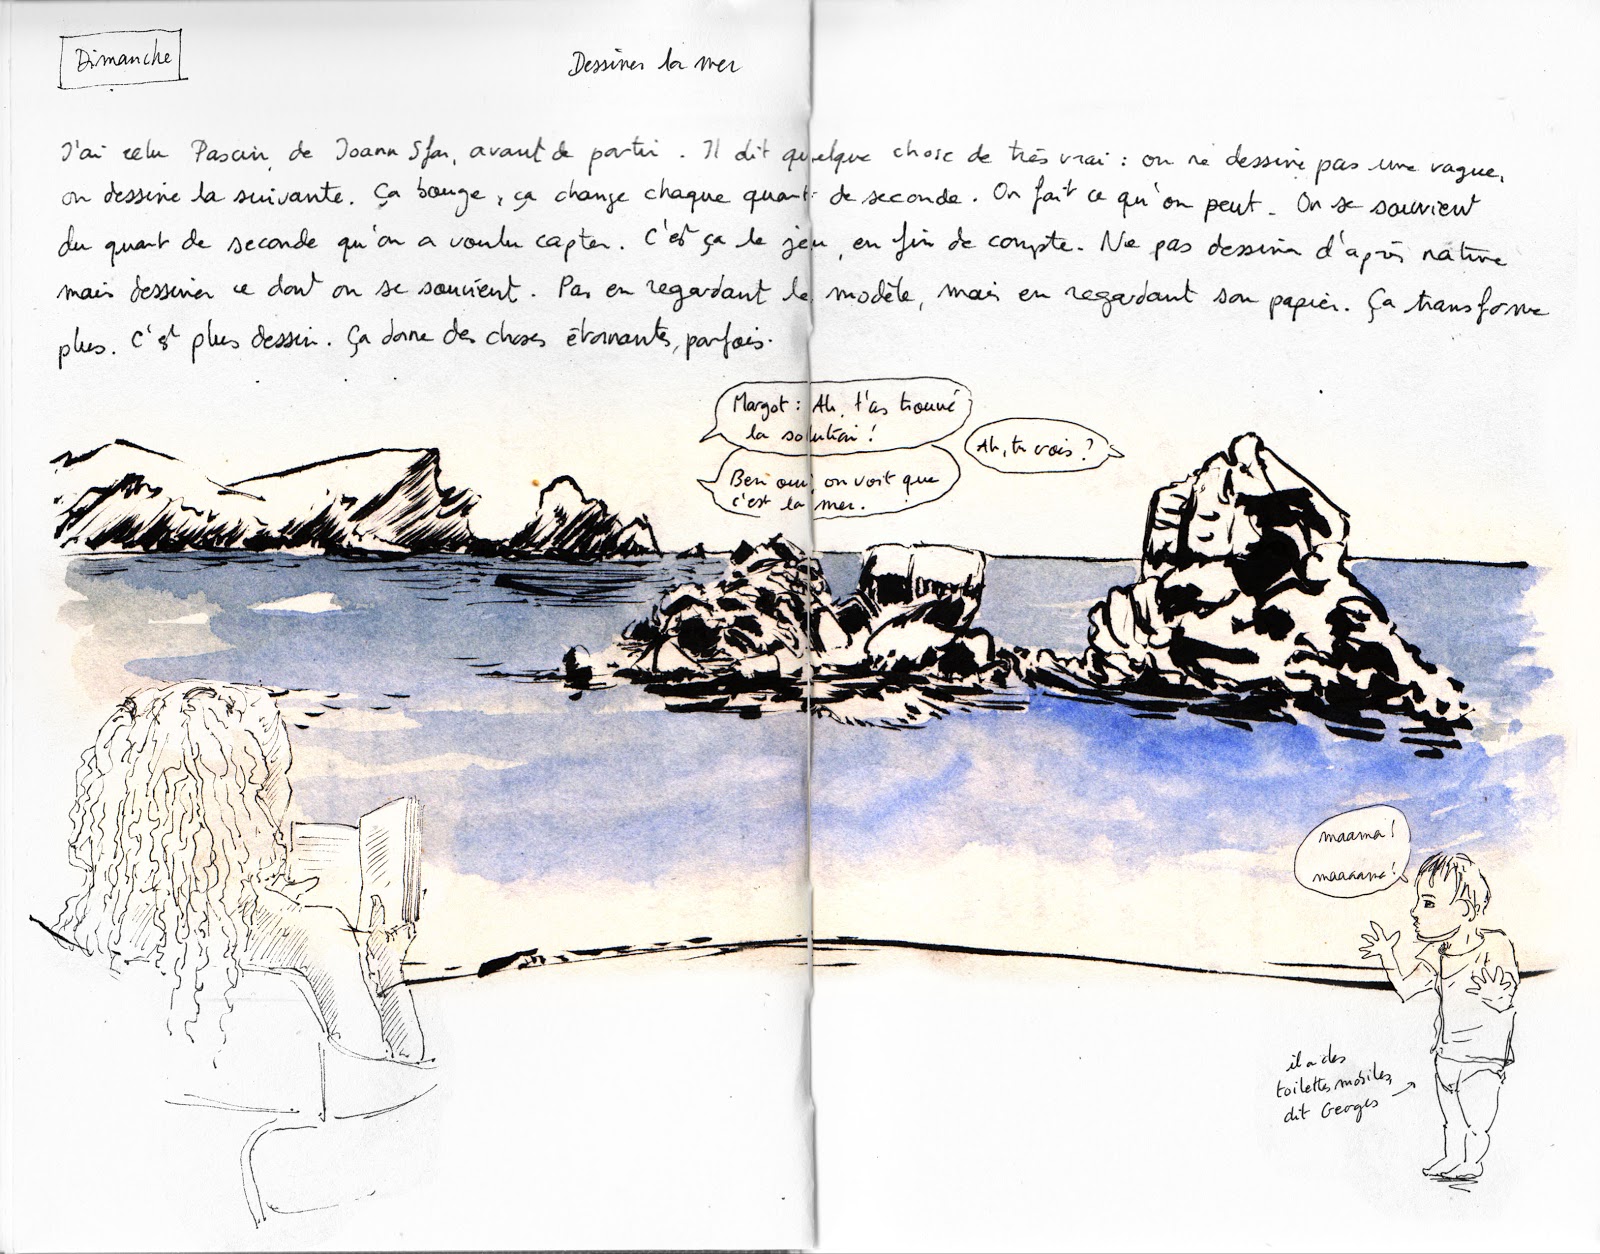 Dimanche
Dessiner la mer
J'ai relu Pascin, de Joann Sfar, avant de partir. Il dit quelque chose de très vrai : on ne dessine pas une vague,
on dessine la suivante. Ça bouge, ça change chaque quart de seconde. On fait ce qu'on peut. On se souvient
du quart de seconde qu'on a voulu capter. C'est ça le jeu, en fin de compte. Ne pas dessiner d'après nature
mais dessiner ce dont on se souvient. Pas en regardant le modèle, mais en regardant son papier. Ça transforme
plus. C'est plus dessin. Ça donne des choses étonnantes, parfois.
Margot : Ah, t'as trouvé
la solution !
Ah, tu crois ?
Ben oui, on voit que
c'est la mer.
maama !
maaaama !
il a des
toilettes mobiles,
dit Georges